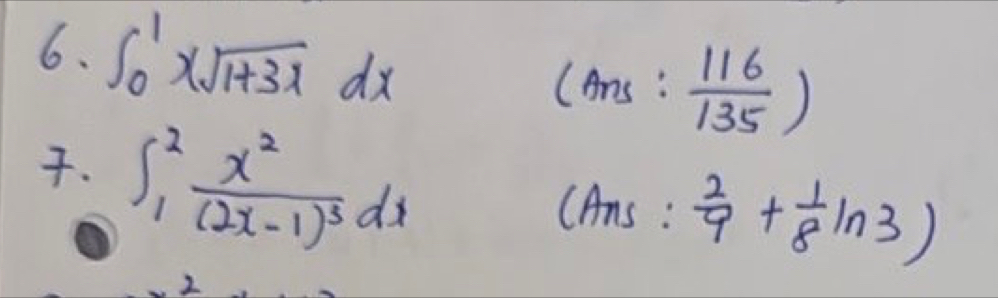 6. ∫₀¹ x√(1+3x) dx (Ans : 116/135)
7. ∫₁² x²/(2x-1)³ dx (Ans : 2/9 + 1/8 ln 3)